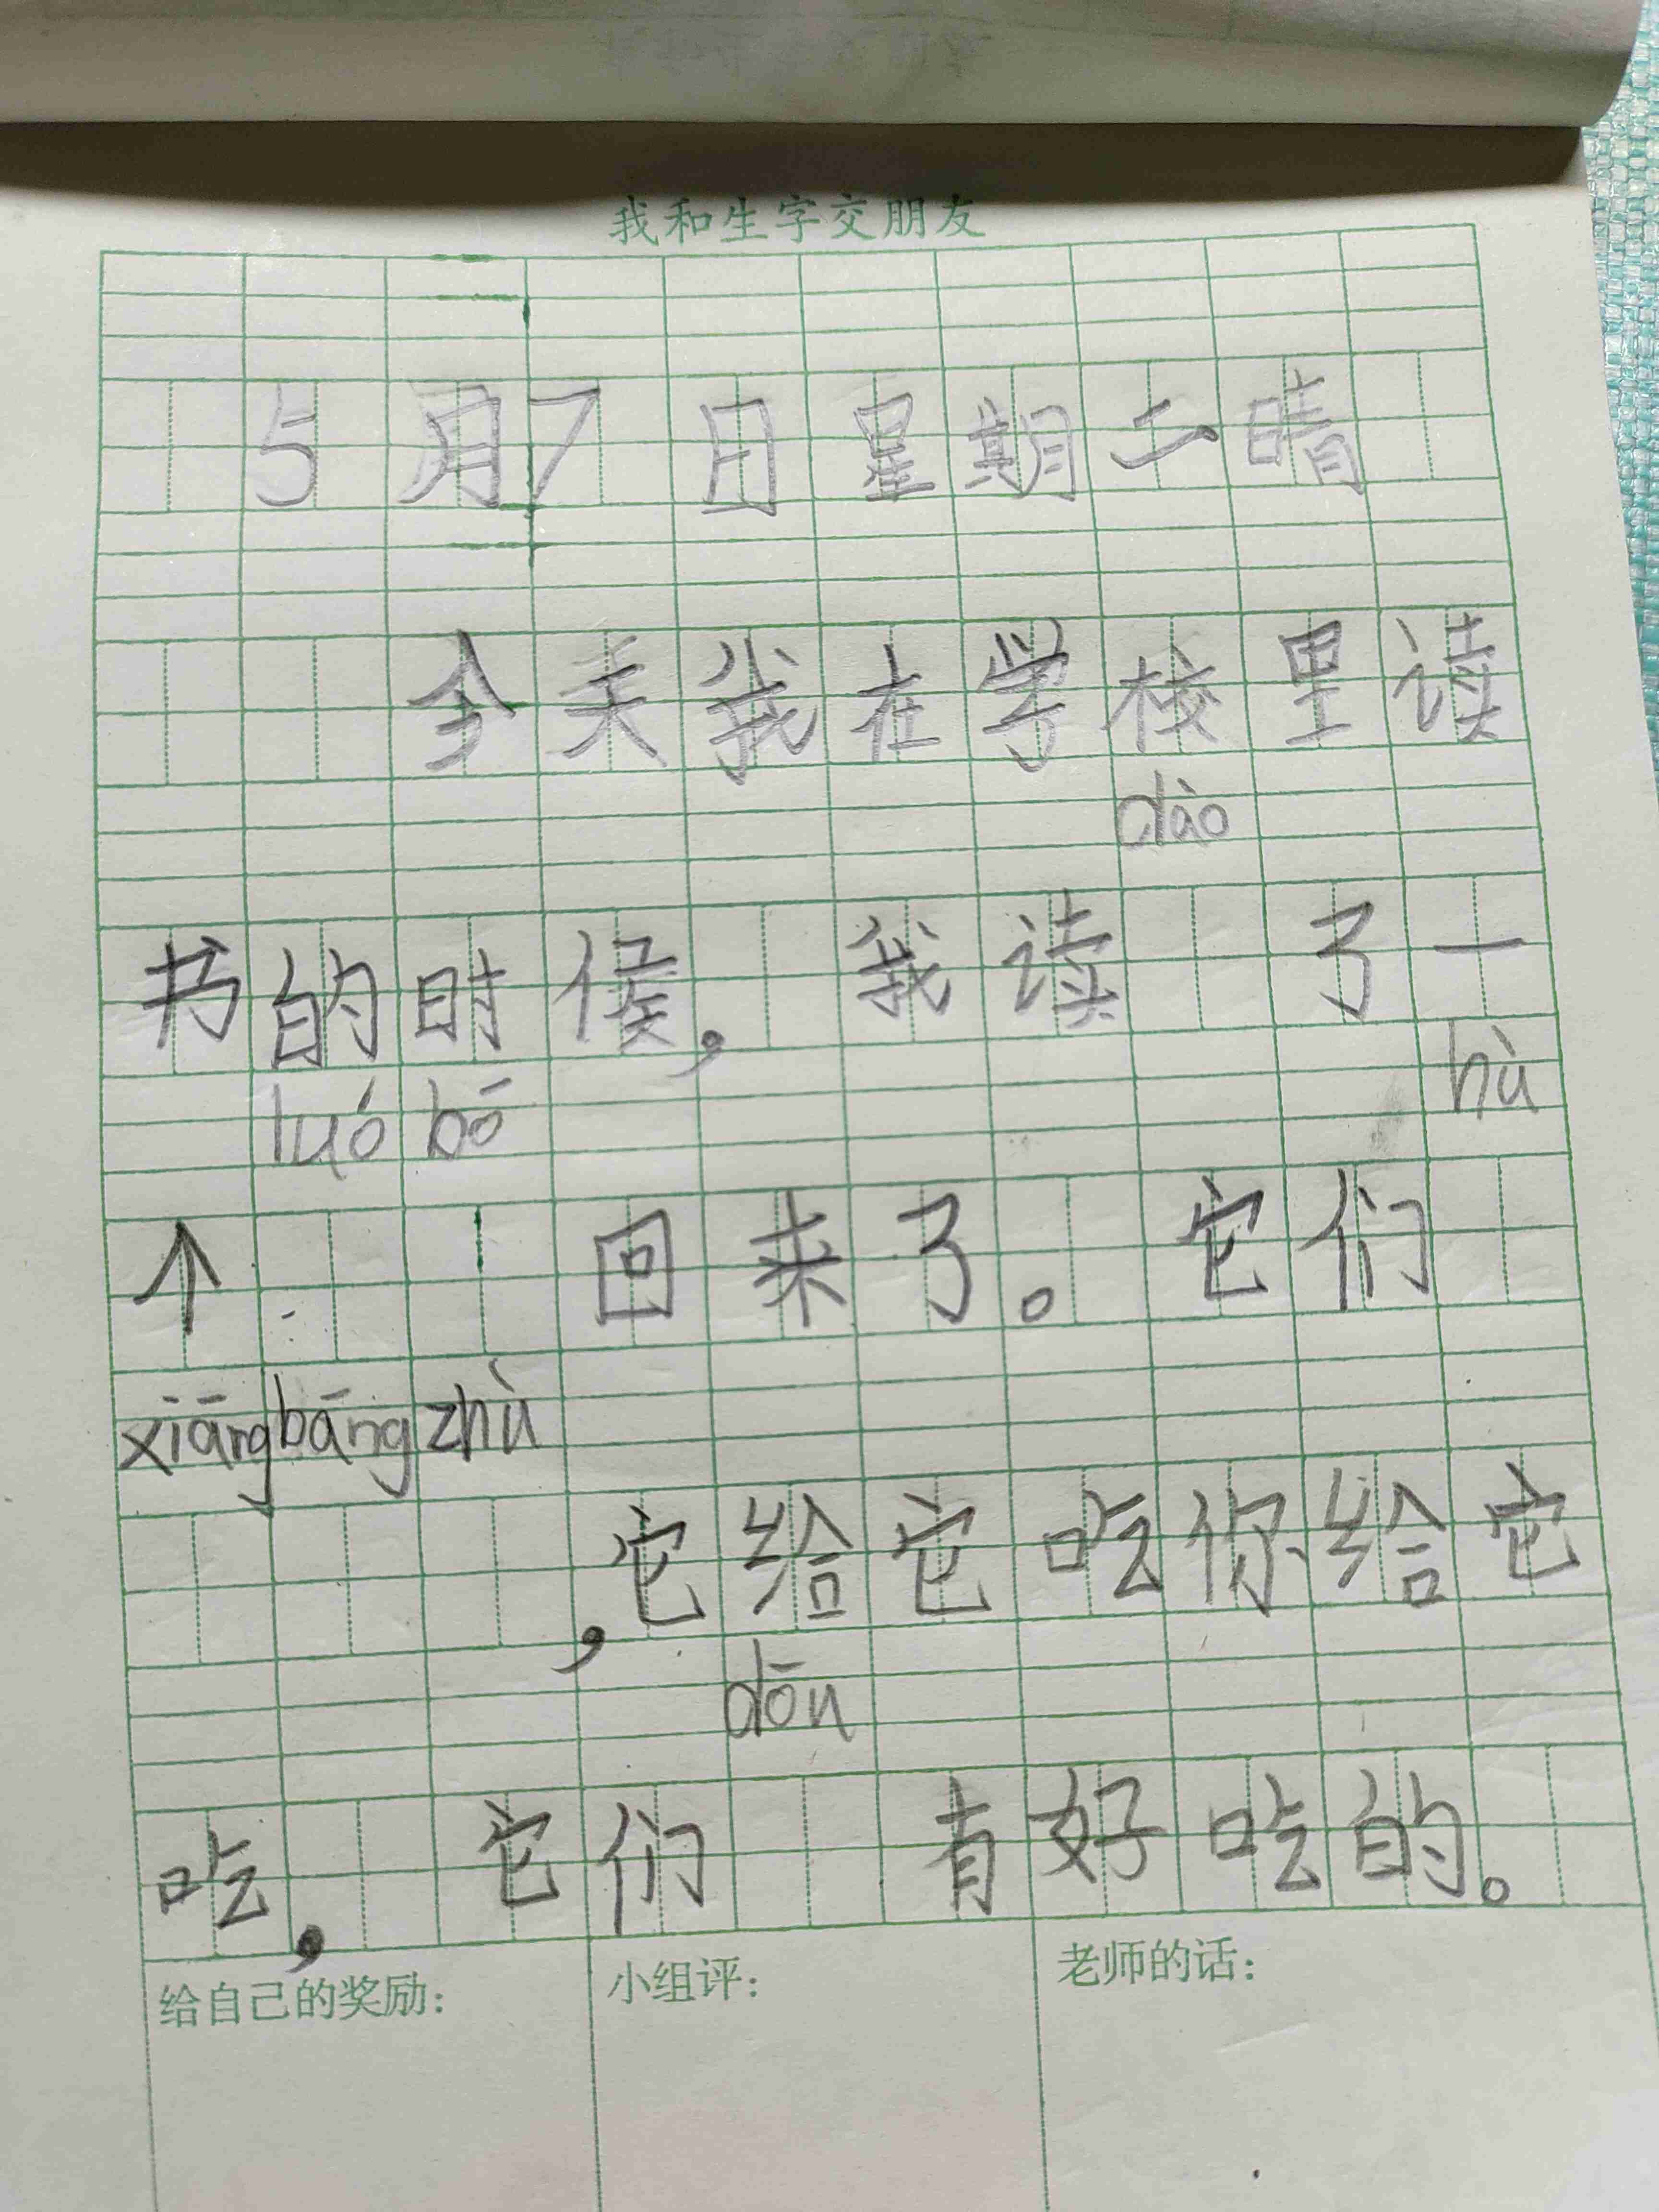 我和生字交朋友
5月7日星期二晴
今天我在学校里读
dào
书的时候，我读 了一
luó bō hù
个 回来了。它们
xiāng bāng zhù
，它给它吃你给它
dōu
吃，它们 有好吃的。
给自己的奖励： 小组评： 老师的话：